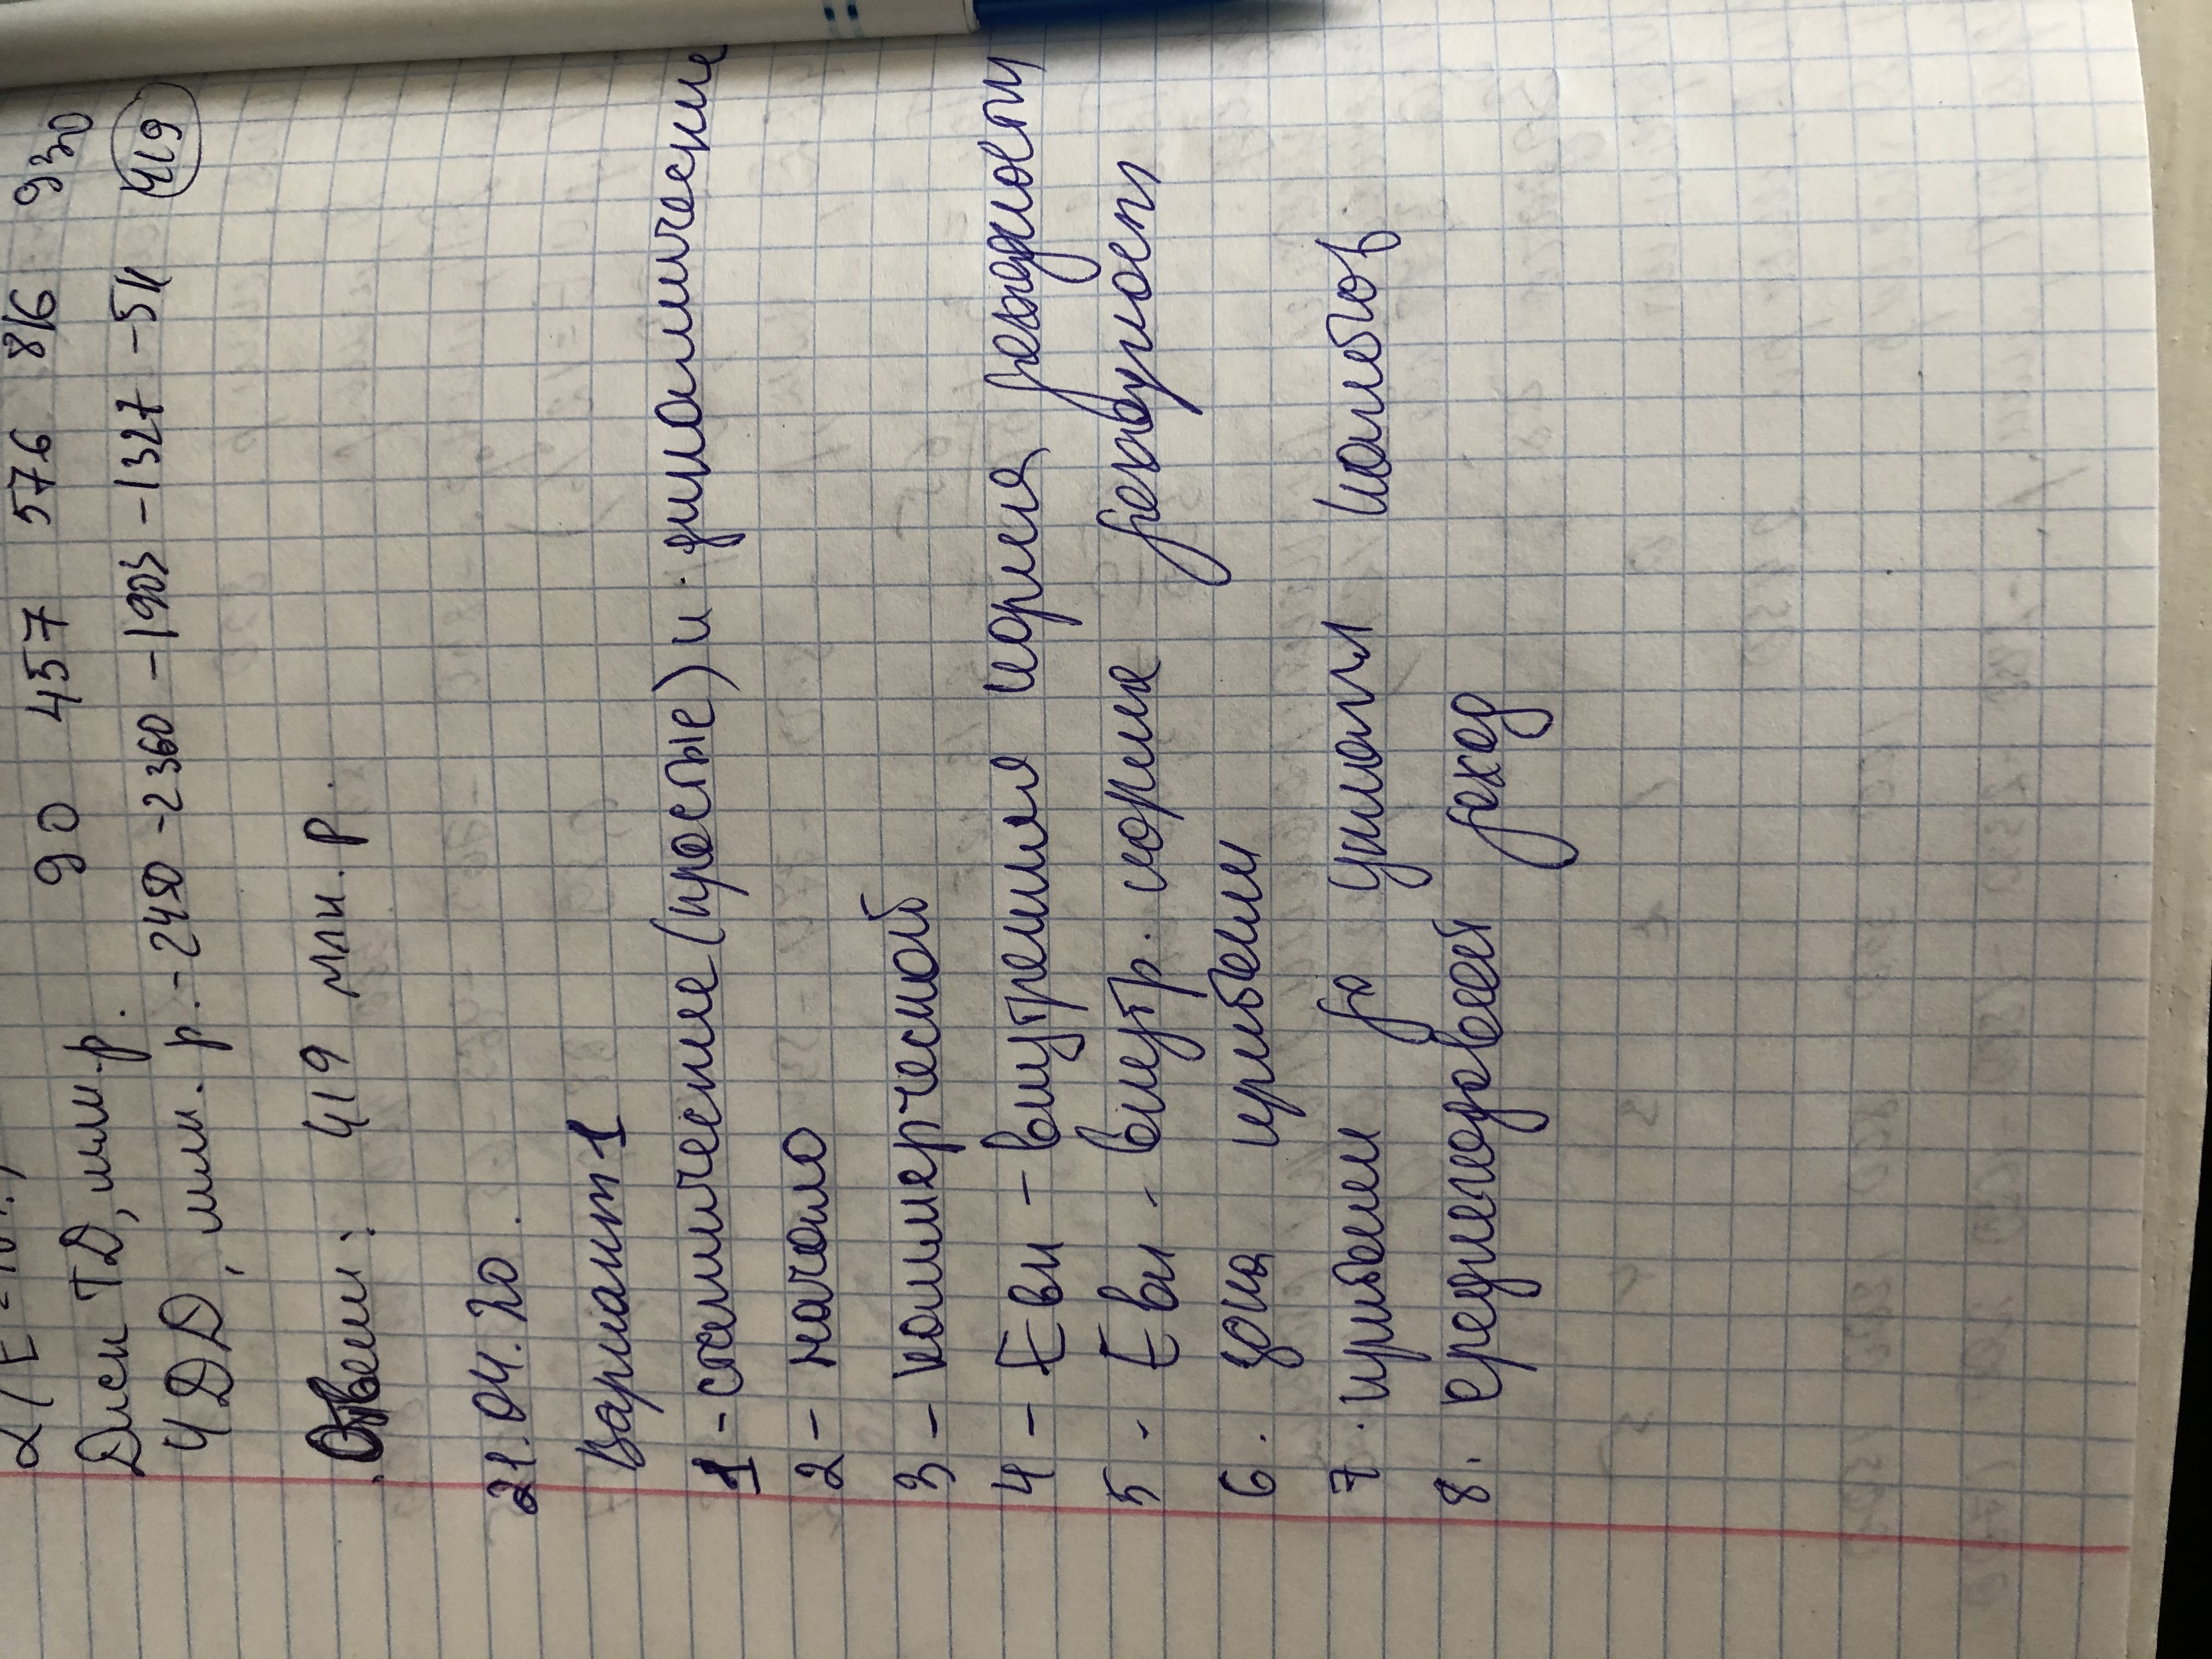 2) E = 10%
Диск ТД, млн. р. 90 457 576 816 930
ЧДД, млн. р. -2450 -2360 -1903 -1327 -511 419
Ответ: 419 млн. р.
21.04.20.
Вариант 1
1 - статические (простые) и динамические
2 - начало
3 - коммерческой
4 - Евн - внутренняя норма доходности
5 - Евн - внутр. норма доходности
6. зона прибыли
7. прибыли до уплаты налогов
8. среднегодовой доход